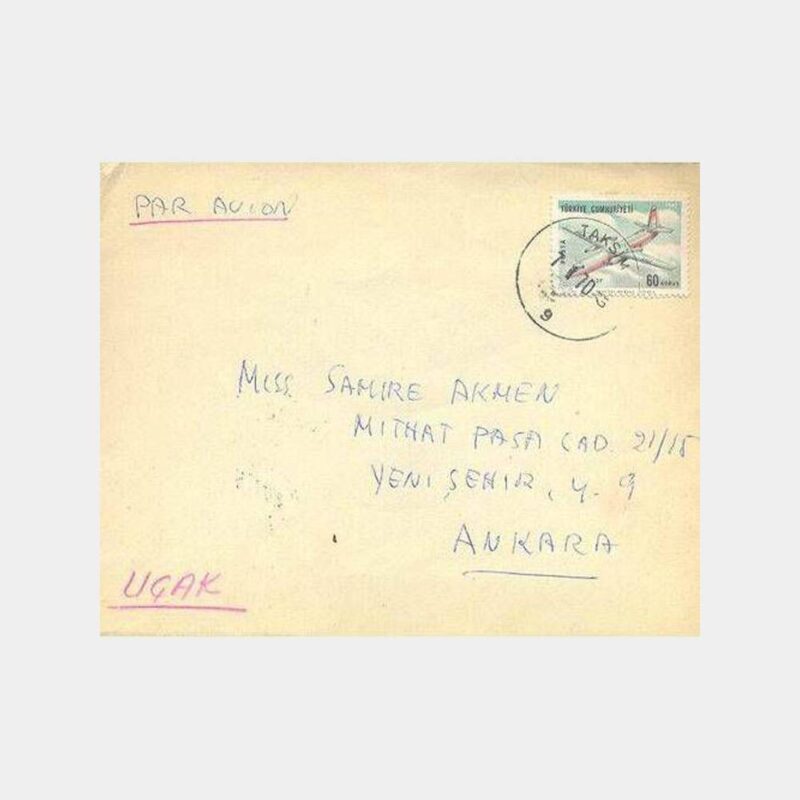 PAR AVION
TÜRKİYE CUMHURİYETİ
POSTA
60 KURUŞ
TAKSİM
Miss SAMIRE AKMEN
MITHAT PAŞA CAD. 21/15
YENİ ŞEHIR, Y. 9
ANKARA
UÇAK